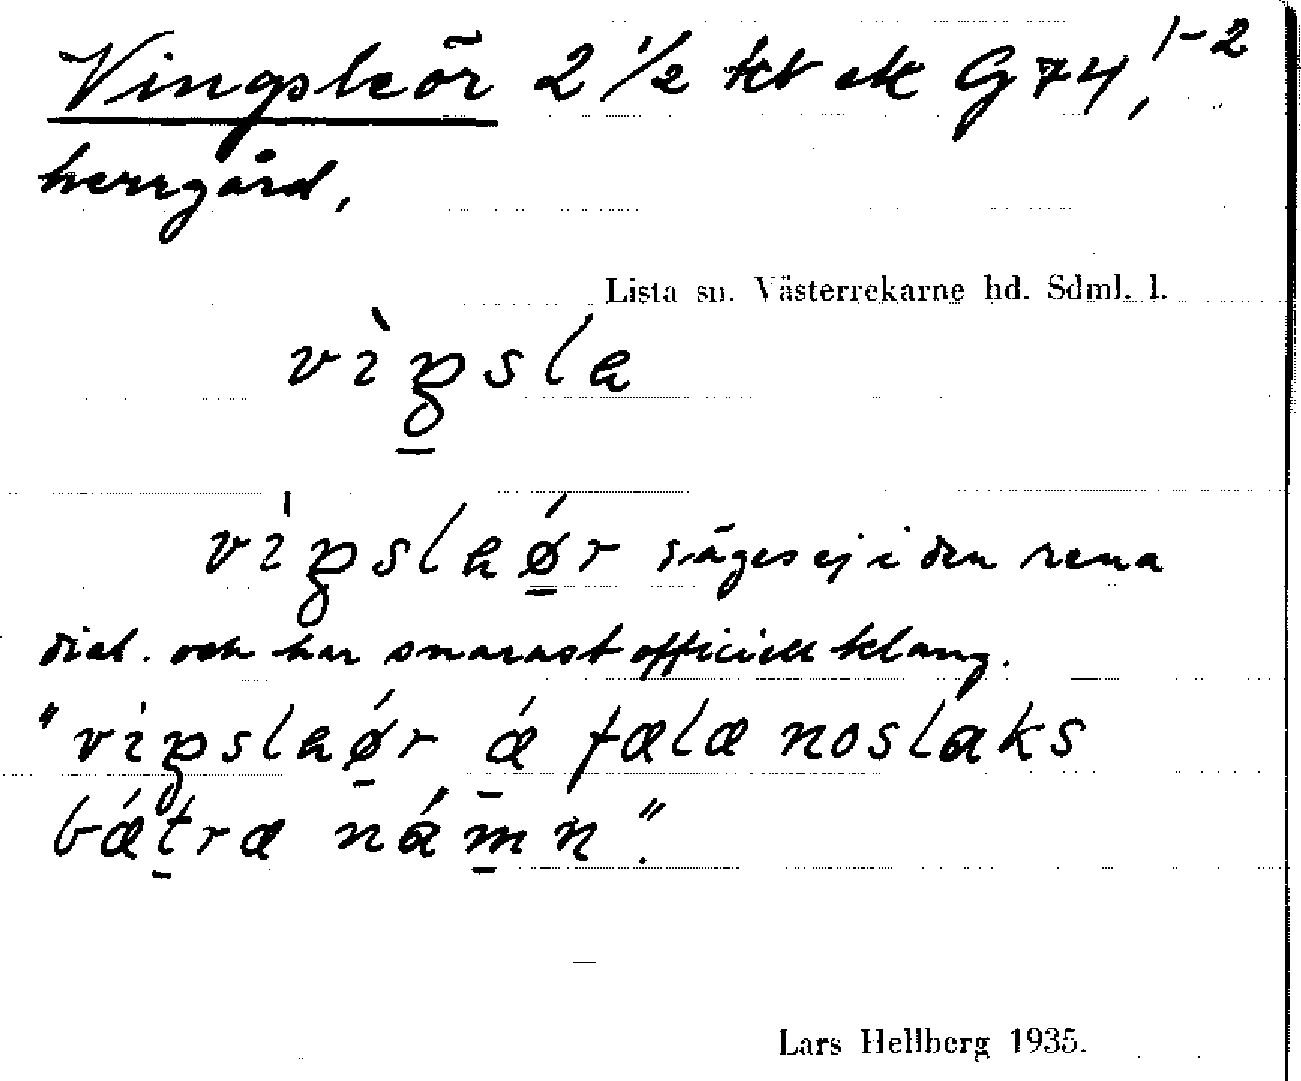 Vingsleör 2 1/2 kt ek G 74, 1-2
herrgård,
Lista sn. Västerrekarne hd. Sdml. l.
vìŋsla
vìŋslaǿr säges ej i den rena
dial. och har snarast officiell klang.
"vìŋslaǿr ǽ fælæ noslaks
bǽtræ námn".
Lars Hellberg 1935.